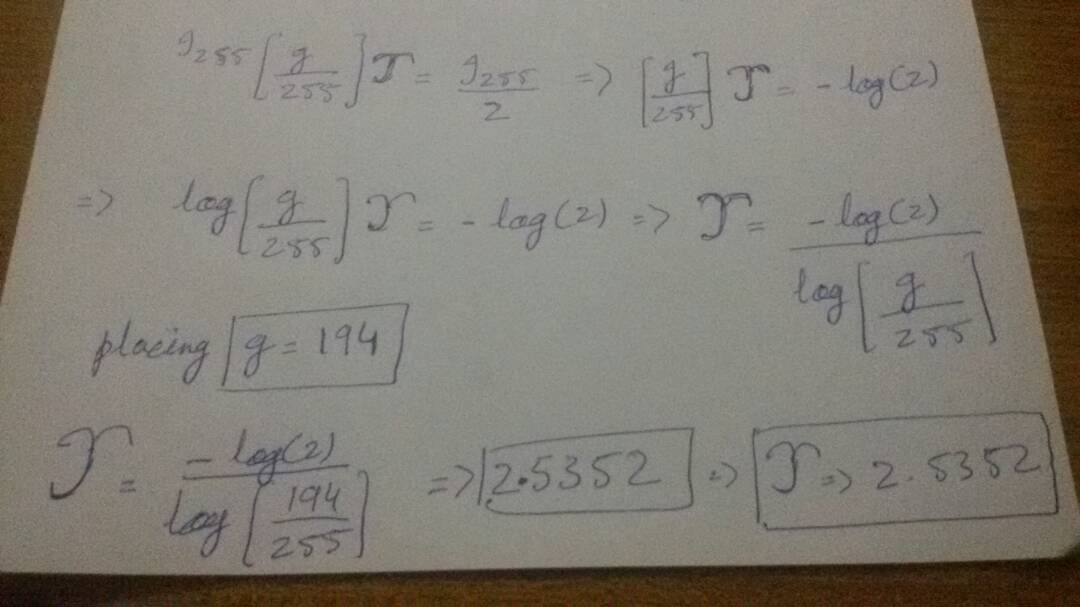 I₂₅₅ [g/255] γ = I₂₅₅/2 => [g/255] γ = - log(2)
=> log[g/255] γ = - log(2) => γ = - log(2)/log[g/255]
placing g = 194
γ = - log(2)/log[194/255] => 2.5352 => γ => 2.5352